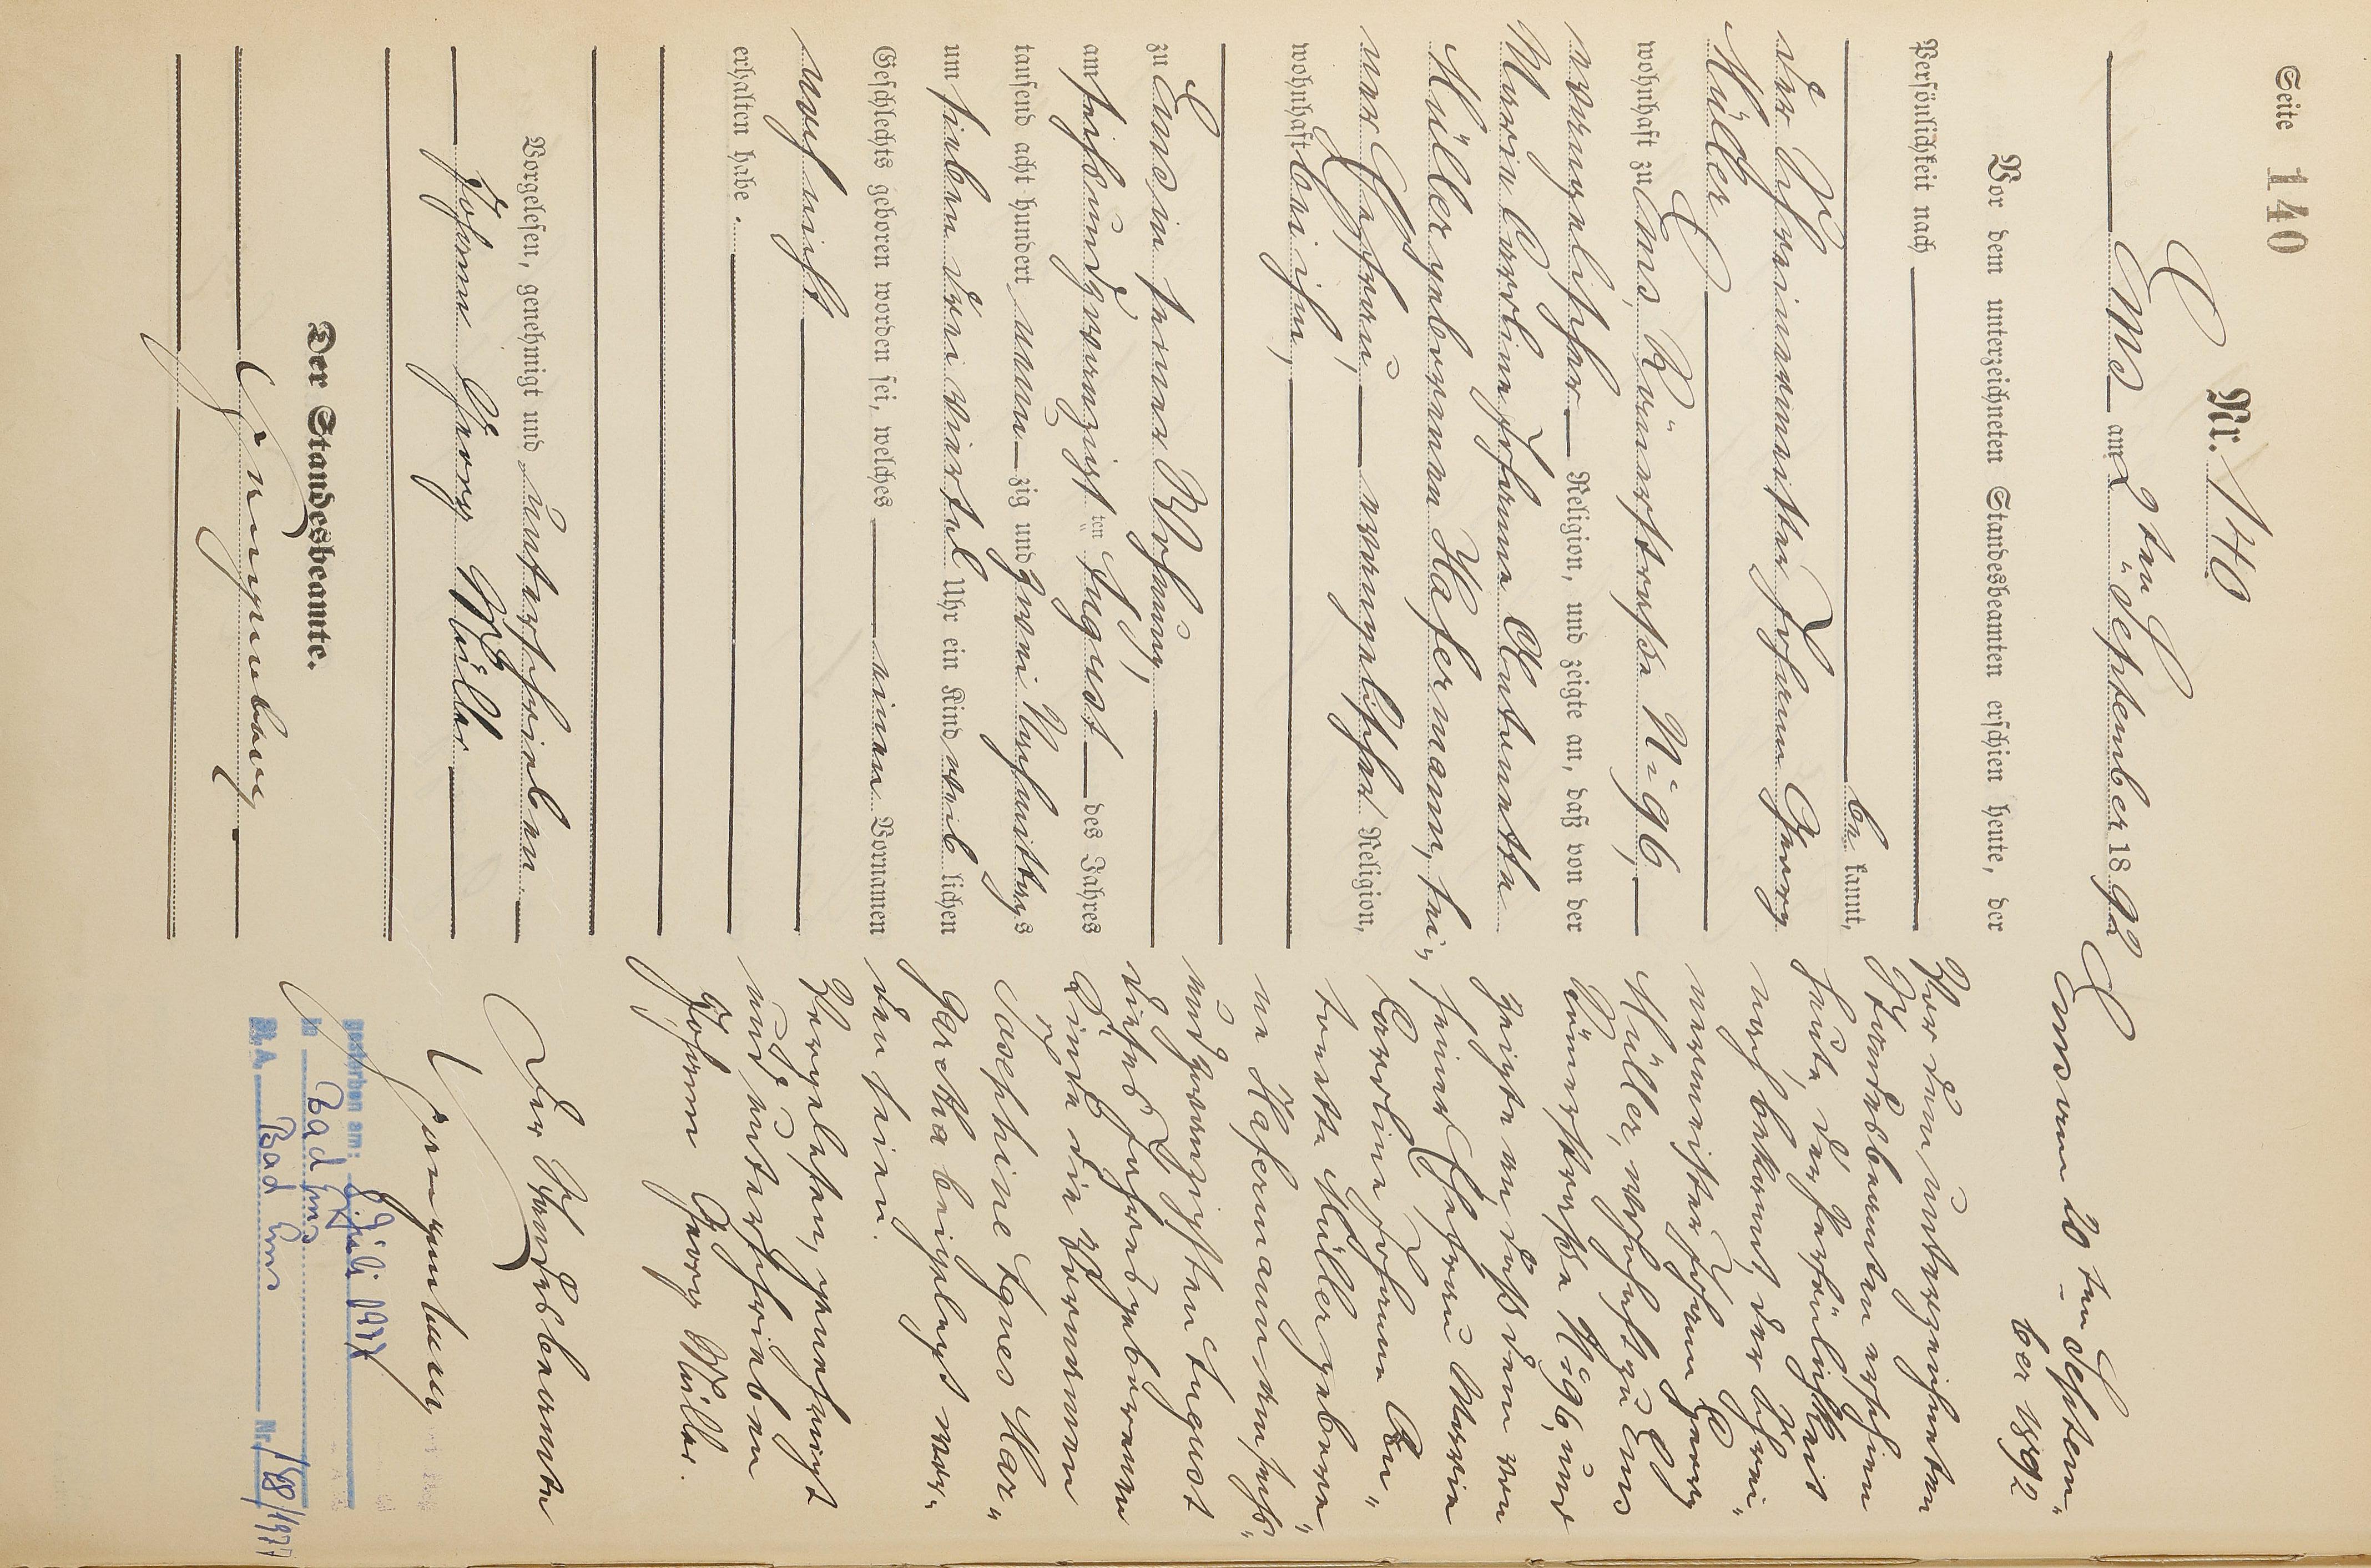 Seite 140
Nr. 140
Ems am 2ten September 1892
Vor dem unterzeichneten Standesbeamten erschien heute, der
Persönlichkeit nach
be kannt,
der Schreinermeister Johann Georg
Müller
wohnhaft zu Ems, Römerstraße N: 96,
evangelischer Religion, und zeigte an, daß von der
Maria Caroline Johanna Antonette
Müller geborenen Hafermann, sei„
ner Ehefrau, evangelischer Religion,
wohnhaft bei ihm,
zu Ems in seiner Wohnung,
am sechsundzwanzigst ten August des Jahres
tausend acht hundert neun zig und zwei Nachmittags
um sieben drei viertel Uhr ein Kind weib lichen
Geschlechts geboren worden sei, welches einen Vornamen
noch nicht
erhalten habe.
Vorgelesen, genehmigt und unterschrieben
Johann Georg Müller
Der Standesbeamte.
Ems am 20ten Septem„
ber 1892
Vor dem unterzeichneten
Standesbeamten erschien
heute, der Persönlichkeit
nach bekannt, der Schrei„
nermeister Johann Georg
Müller, wohnhaft zu Ems
Römerstraße N: 96, und
zeigte an, daß dem von
seiner Ehefrau Maria
Caroline Johanna An„
tonette Müller gebore„
ne Hafermann am sechs„
undzwanzigsten August
dieses Jahres geborenen
Kinde die Vornamen
Josephine Agnes Mar„
garetha beigelegt wor„
den seien.
Vorgelesen, genehmigt
und unterschrieben
Johann Georg Müller.
Der Standesbeamte
gestorben am: Juli 1977
in Bad Ems
St. A. Bad Ems Nr. 188/1977